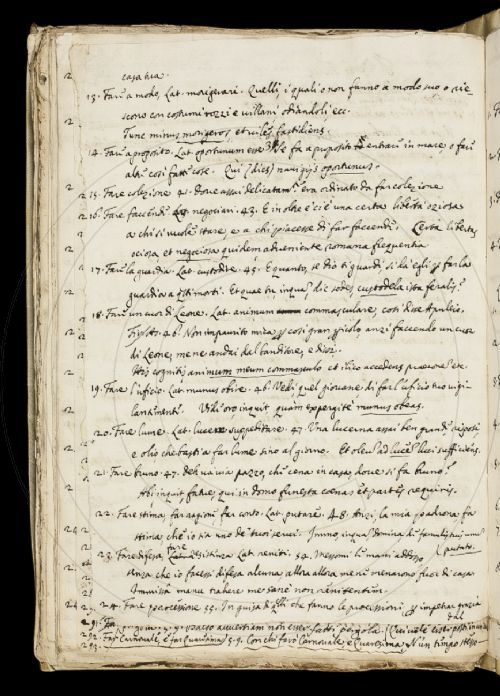 casa tua.
13. Fare a modo, Lat. morigerari. Quelli, i quali o non fanno a modo suo, o
scono con costumi rozzi e villani odiandoli ecc.
Tunc minus morigeros, et viles fastidiens.
14. Fare a proposito. Lat. oportunum esse se fa a proposito entrare in mare, o fare
altre cosi fatte cose. Qui (dies) navigiis oportunus.
15. Fare colezione 41. Dove assai delicatam. era ordinato da far colezione
16. Fare faccende negociari. 43. E inoltre c'è una certa libertà oziosa
a chi si vuole stare, e a chi piacesse di far faccende. Certa libertas
ociosa, et negociosa quidem advenienti romana frequentia
17. Fare la guardia. Lat. custodire. 45. E quanto, se dio ti guardi si ha egli per far la
guardia a morti. Et quae tu, inquam, dic sodes, custodela ista feralis?
18. Fare un cuor di Leone. Lat. animum commasculare, così disse Apulejo.
46. Non impaurito mica per così gran anzi facendo un cuor
di Leone, me ne andai dal banditore, e dissi.
His cognitis animum meum commasculo et ilico accedens praeconem etc.
19. Fare l'uficio. Lat. munus obire. 46. Vedi quel giovane di far l'uficio tuo
. Vide oro inquit, quam expergite munus obeas.
20. Fare lume. Lat. lucem suppeditare. 47. Una lucerna assai ben grande
e olio che basti a far lume sino al giorno. Et oleum ad luce luci sufficiens.
21. Fare bruno. 47. deh va via pazzo, chi cena in casa, dove si fa bruno?
Abi inquit fatue, qui in domo funesta coenas et partes requiris.
22. Fare stima, far ragioni far conto. Lat. putare. 48. Anzi, la mia padrona, fa
stima, che io sia uno de' tuoi servi. Immo inquam domina de
putato.
23. Fare difesa, fare resistenza Lat. reniti. 54. Messomi li mani addosso
senza che io facessi difesa alcuna, allora allora menarono fuor di casa
Immissa manu trahere me sane non renitentem.
24. Fare processione. 55. In guisa di che fanno le processioni per impetrar grazia
292. Fare Carnovale, e far quaresima. 59. Con chi farò Carnovale, e Quaresima un tempo stesso
293.